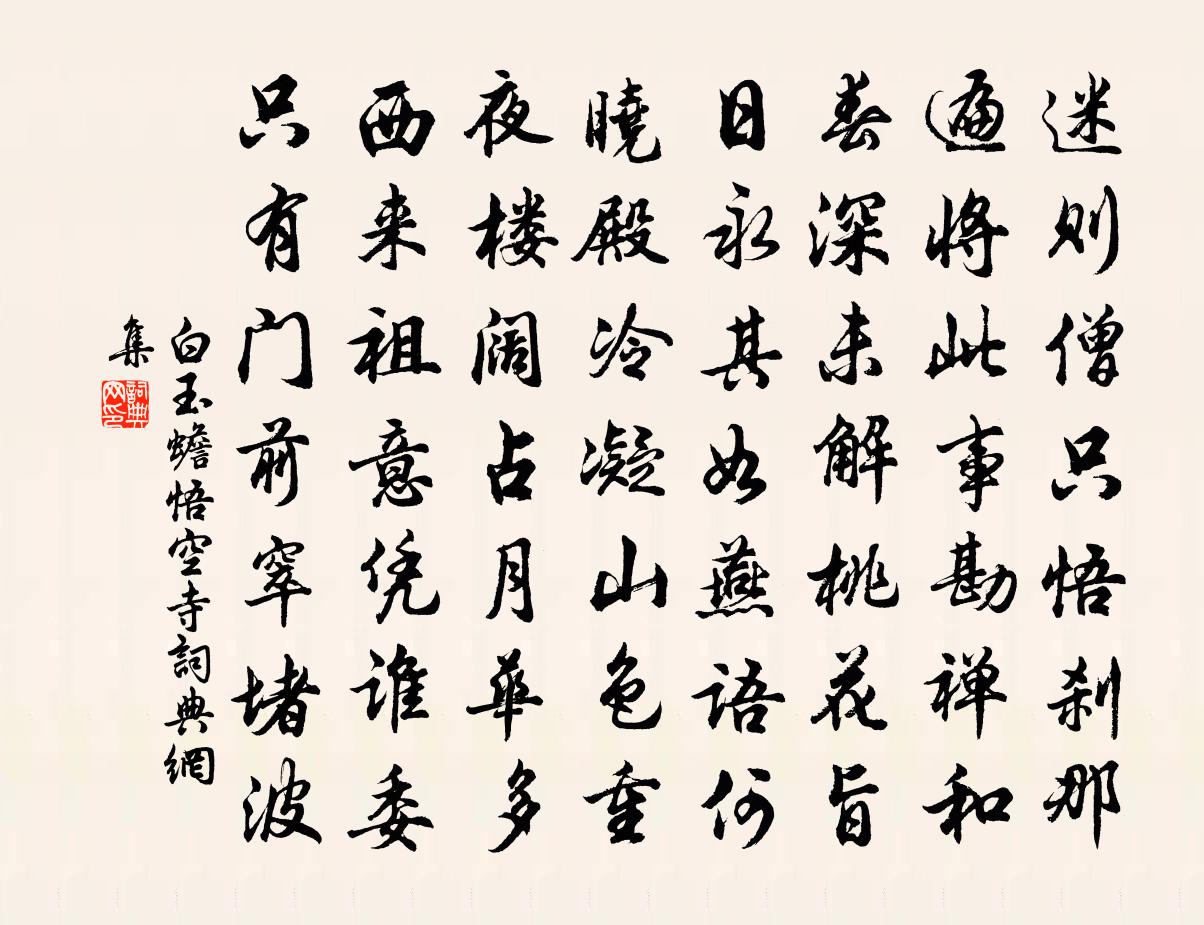 迷则僧只悟刹那
遍将此事勘禅和
春深未解桃花旨
日永其如燕语何
晓殿冷凝山色重
夜楼阔占月华多
西来祖意凭谁委
只有门前窣堵波
白玉蟾悟空寺詞典網
集
詞典
网印